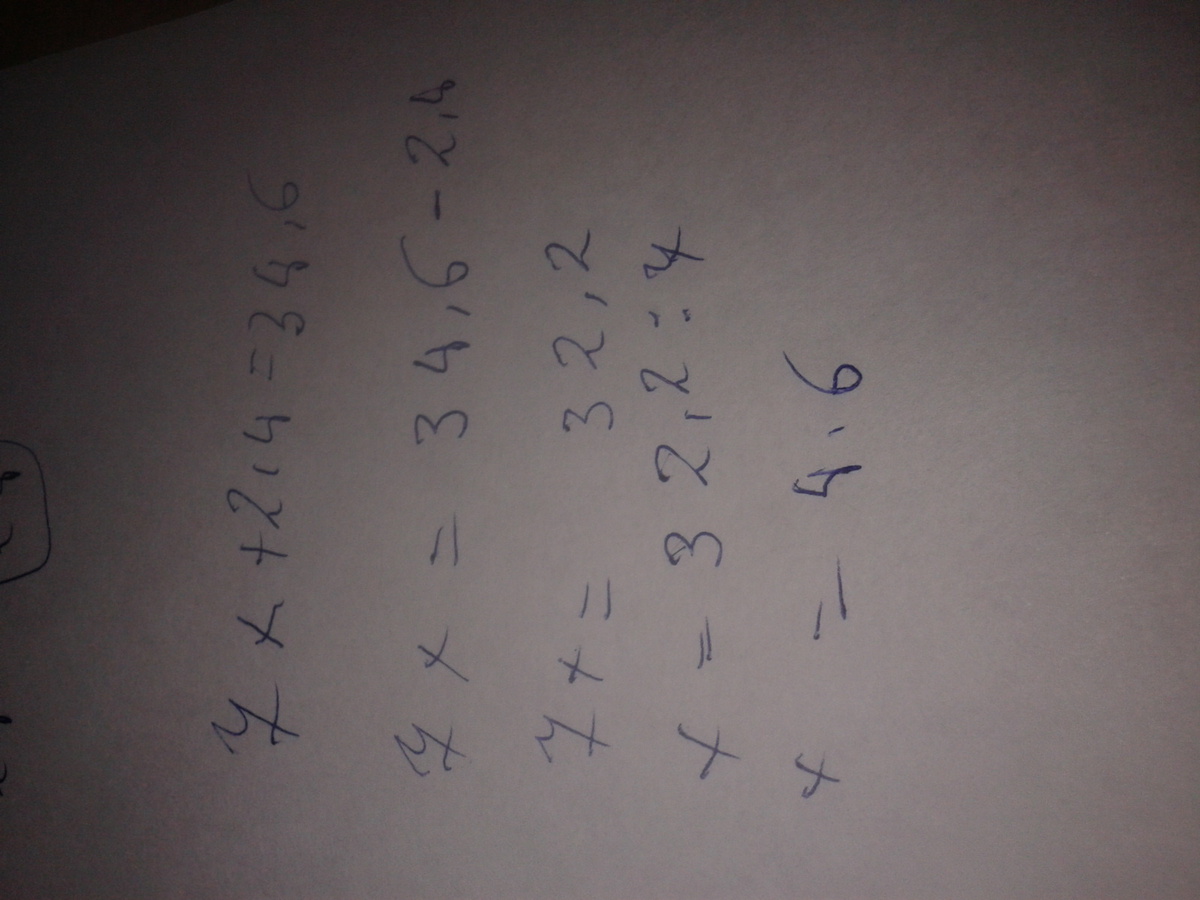 7x+2,4=34,6
7x = 34,6-2,4
7x = 32,2
x = 32,2:7
x = 4.6